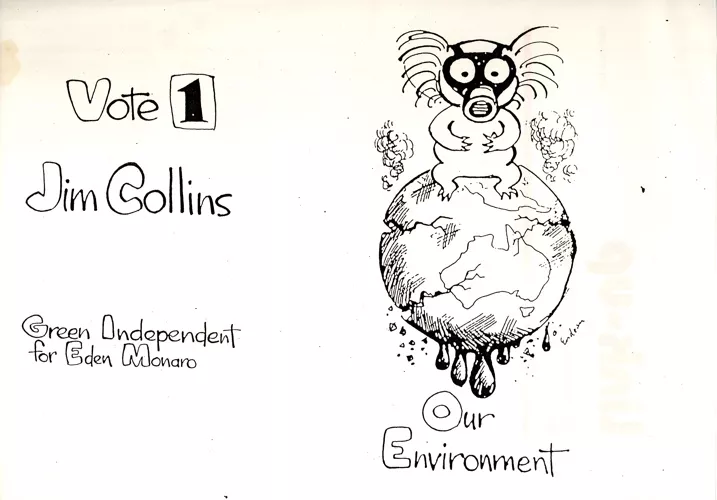 Vote 1
Jim Collins
Green Independent
for Eden Monaro
Our
Environment